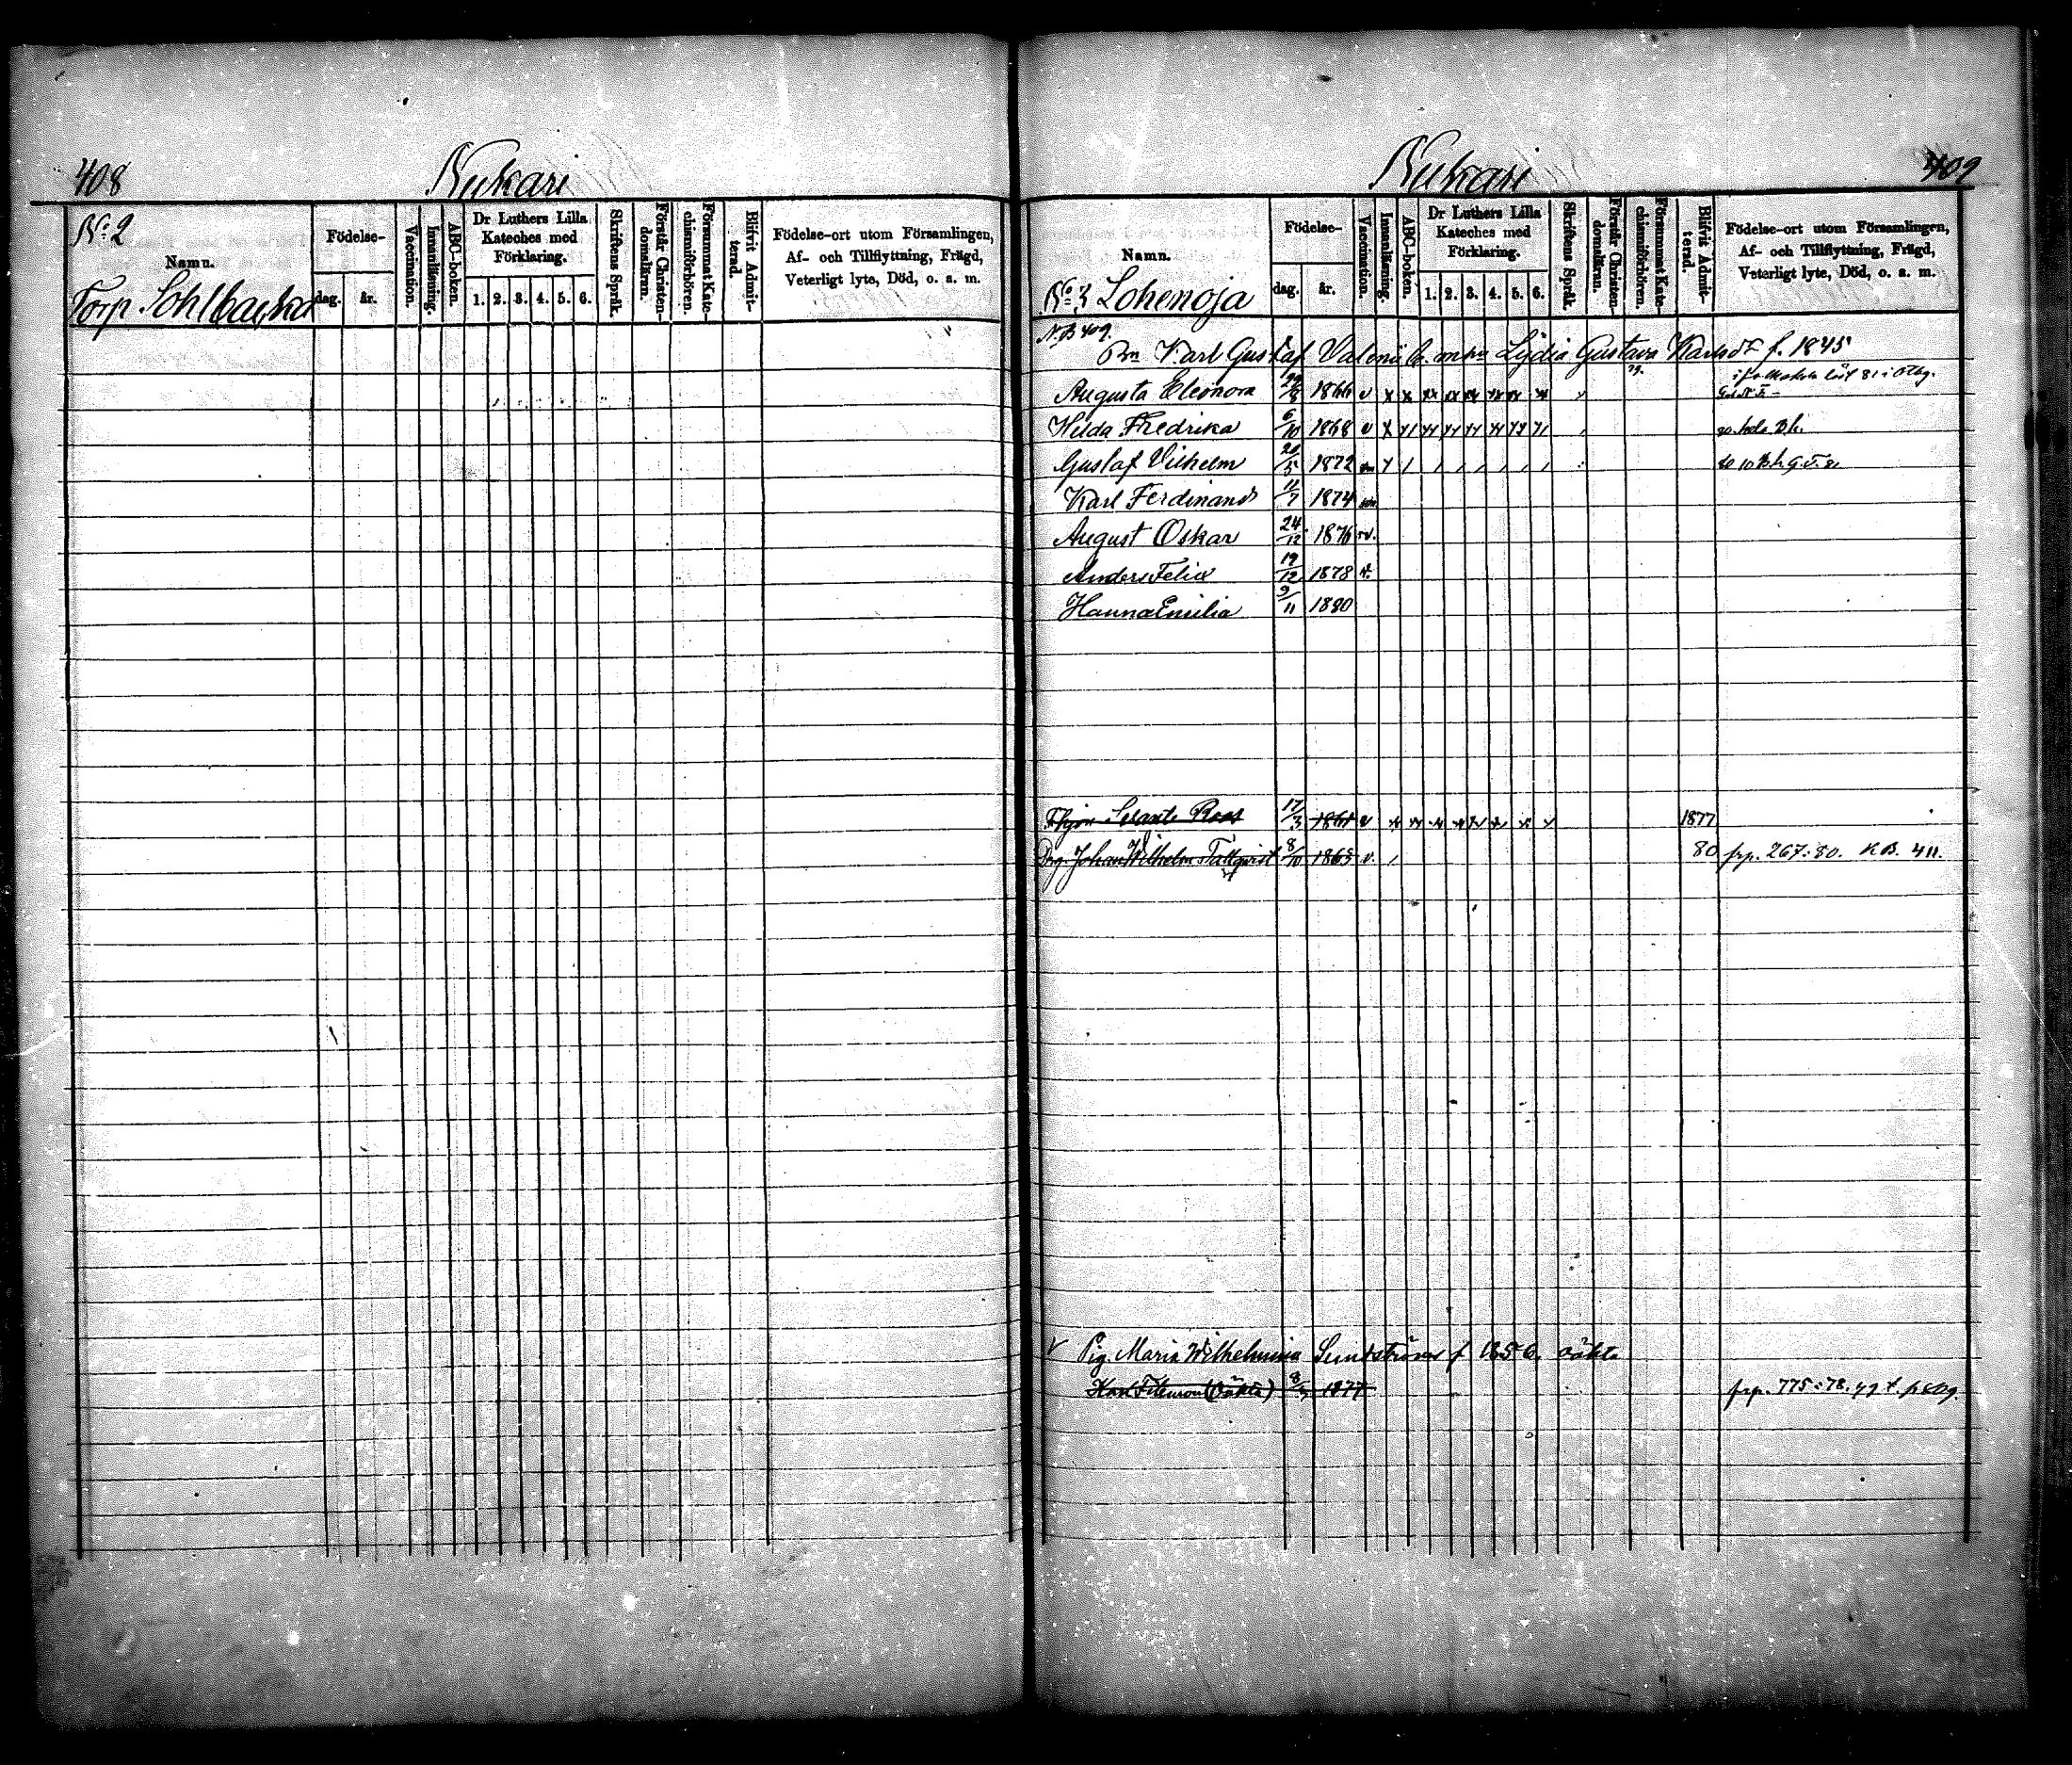 408
Nukari
No 2
Namn.
Torp. Sohlbacka
Födelse-
dag.
år.
Vaccination.
Innanläsning.
ABC-boken.
Dr Luthers Lilla
Kateches med
Förklaring.
1. 2. 3. 4. 5. 6.
Skriftens Språk.
Förstår Christen-
domsläran.
Försummat Kate-
chismiförhören.
Blifvit Admit-
terad.
Födelse-ort utom Församlingen,
Af- och Tillflyttning, Frägd,
Veterligt lyte, Död, o. s. m.
Nukari
409
Namn.
No 3 Lohenoja
Födelse-
dag.
år.
Vaccination.
Innanläsning.
ABC-boken.
Dr Luthers Lilla
Kateches med
Förklaring.
1. 2. 3. 4. 5. 6.
Skriftens Språk.
Förstår Christen-
domsläran.
Försummat Kate-
chismiförhören.
Blifvit Admit-
terad.
Födelse-ort utom Församlingen,
Af- och Tillflyttning, Frägd,
Veterligt lyte, Död, o. s. m.
N.B 409.
Karl Gustaf Lydia Gustava Karlsdr f. 1845
Augusta Eleonora 1866 v
Hilda Fredrika 6/10 1868 v
Gustaf Vilhelm 20/5 1872
Karl Ferdinand 11/7 1874
August Oskar 24/12 1876 v.
Anders Felix 19/12 1878 v.
Hanna Emilia 9/11 1880
Roos 17/3 1861 v 1877
Drg. Johan Wilhelm Tallqvist 8/10 1865 v. 80 frp. 267:80. K.B. 411.
v Pig. Maria Wilhelmina Sundström f 1856, oäkta
Karl Filemon (oäkta) 1877 frp. 775:78.